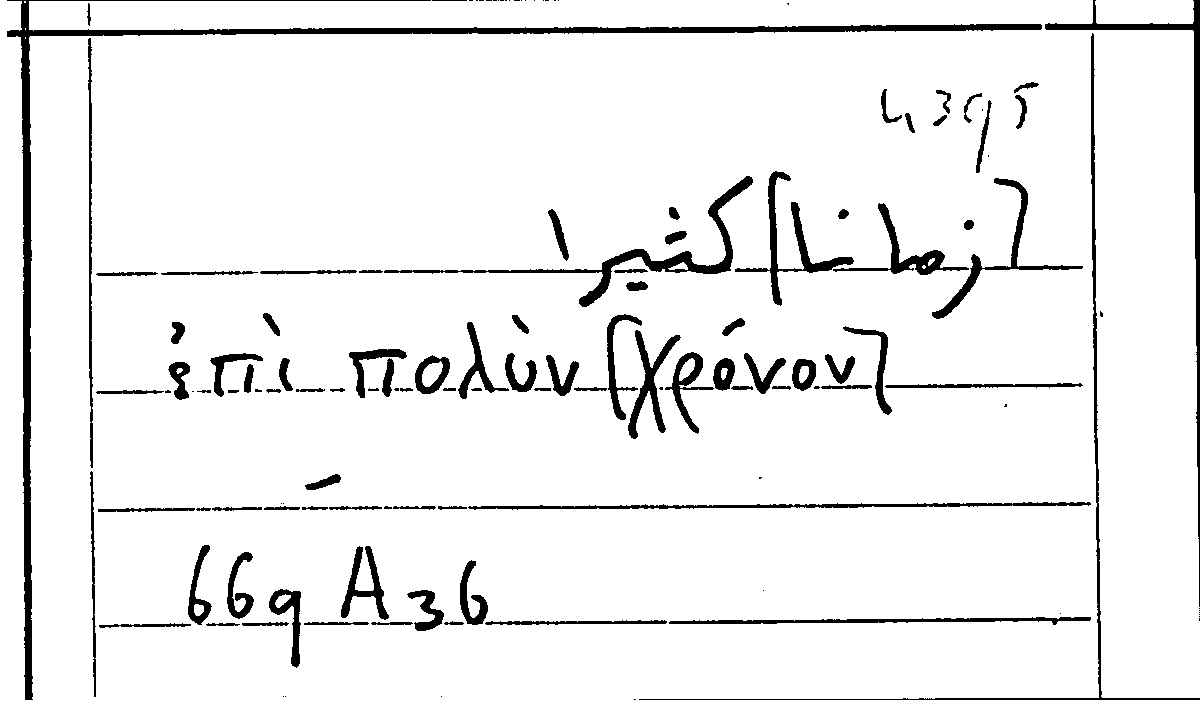 4395
[زمانا] كثيرا
ἐπὶ πολὺν [χρόνον]
–
669 A 36